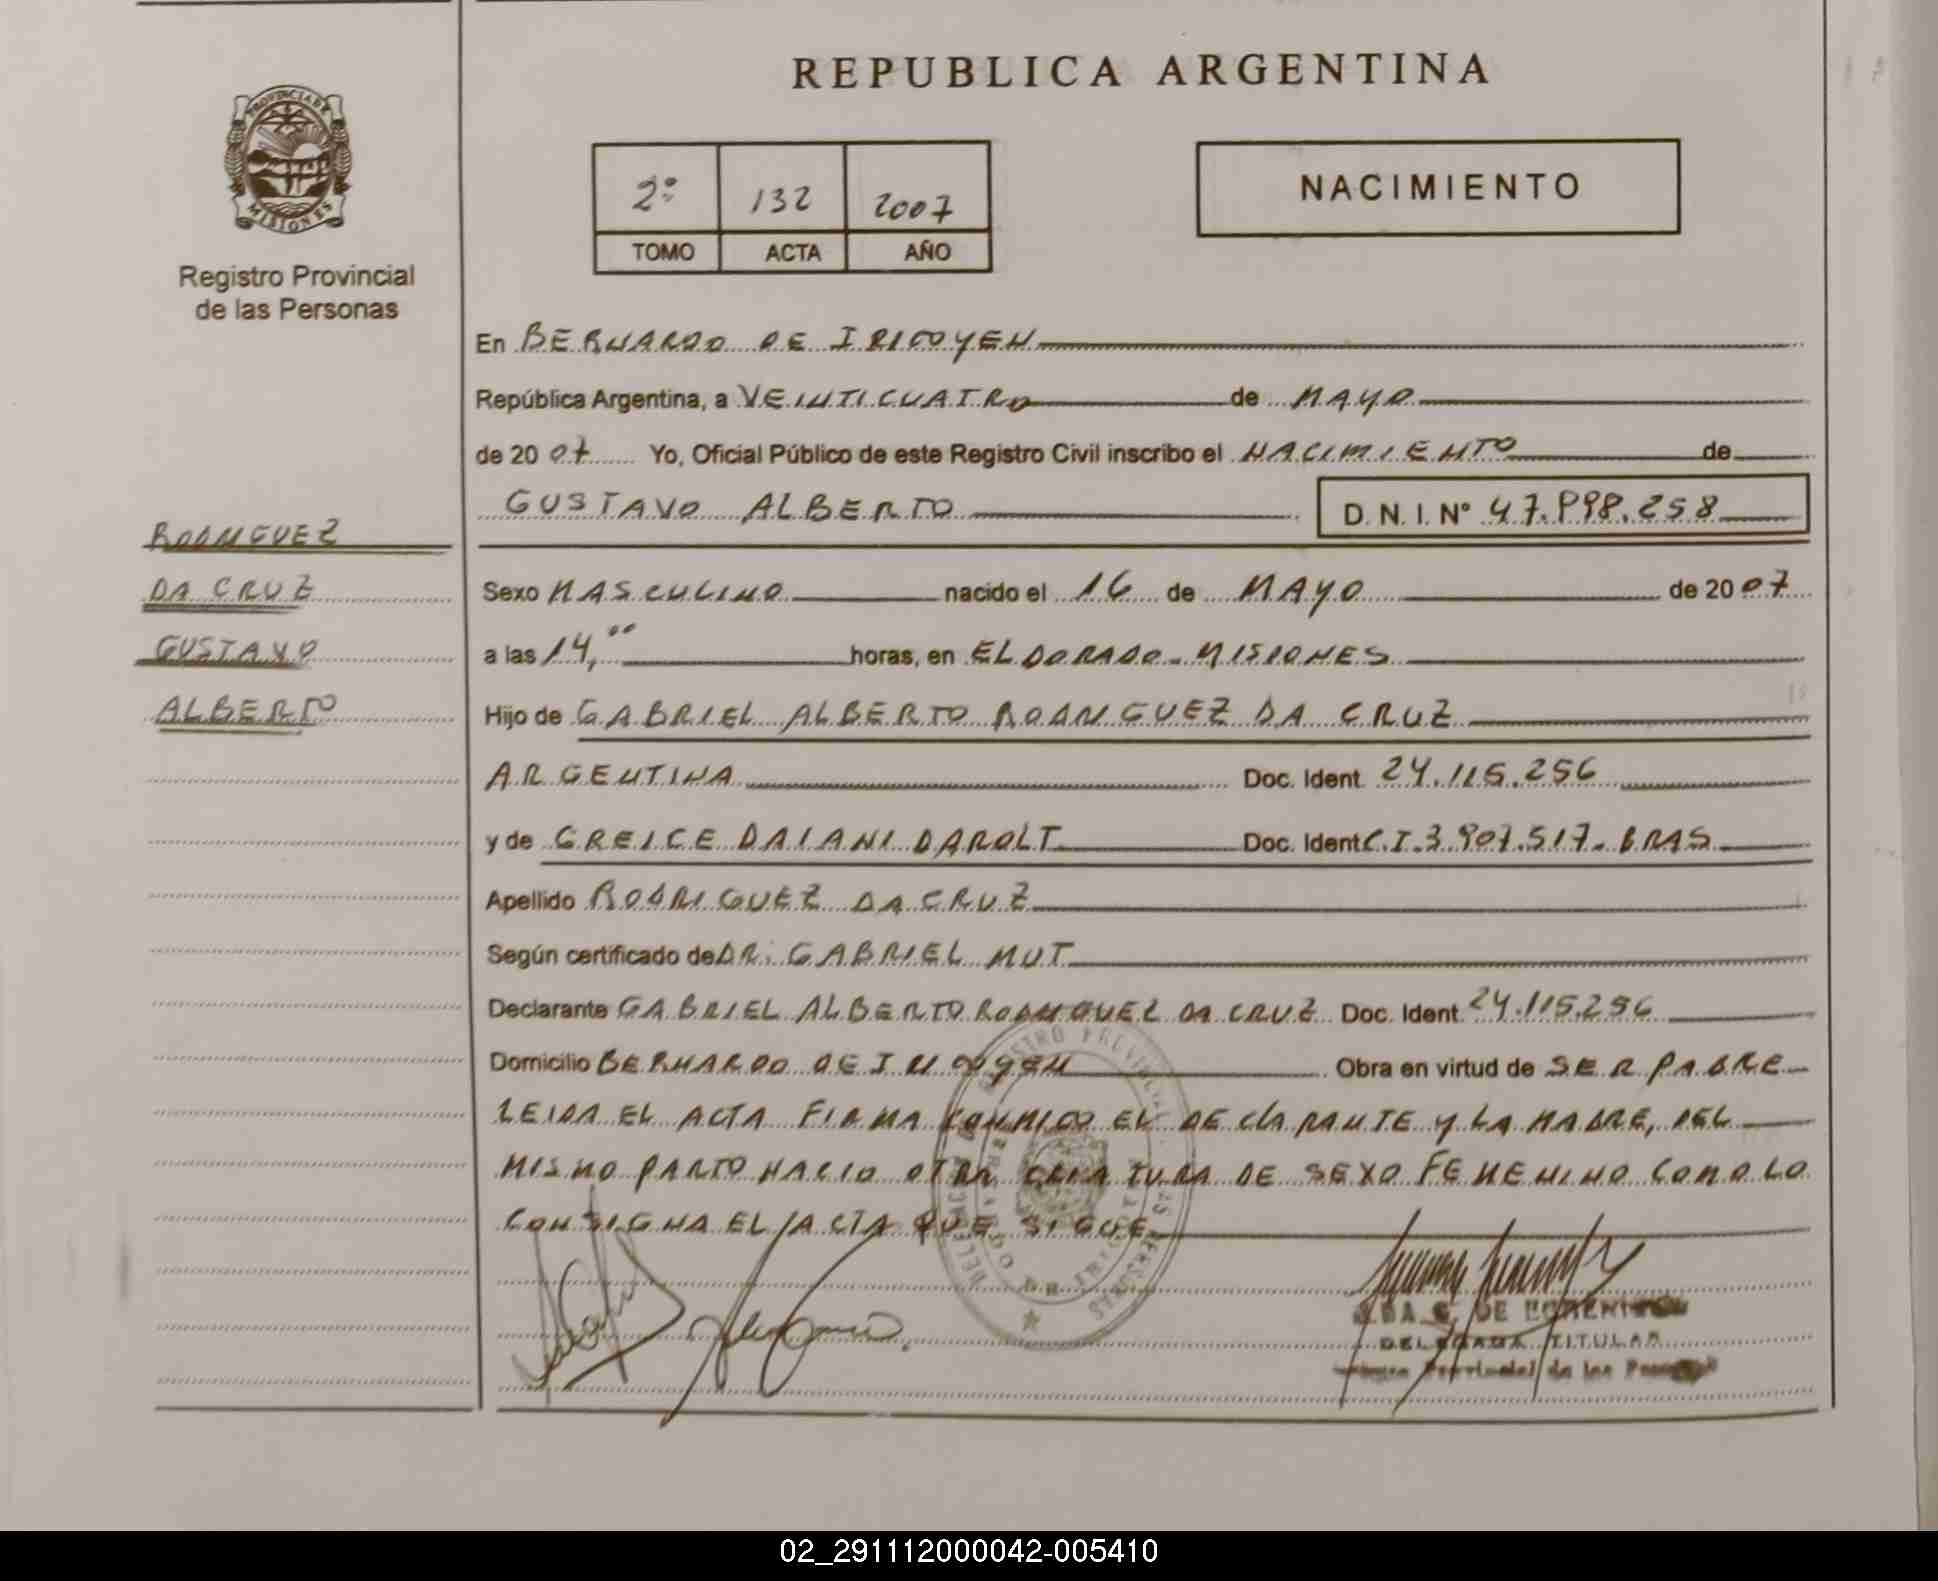 REPUBLICA ARGENTINA
PROVINCIA DE
MISIONES
Registro Provincial
de las Personas
2º 132 2007
TOMO ACTA AÑO
NACIMIENTO
En BERNARDO DE IRIGOYEN
República Argentina, a VEINTICUATRO de MAYO
de 2007 Yo, Oficial Público de este Registro Civil inscribo el NACIMIENTO de
GUSTAVO ALBERTO D. N. I. Nº 47.998.258
RODRIGUEZ
DA CRUZ
GUSTAVO
ALBERTO
Sexo MASCULINO nacido el 16 de MAYO de 2007
a las 14,00 horas, en ELDORADO - MISIONES
Hijo de GABRIEL ALBERTO RODRIGUEZ DA CRUZ
ARGENTINA Doc. Ident. 24.115.256
y de GREICE DAIANI DAROLT Doc. Ident C.I.3.907.517- BRAS
Apellido RODRIGUEZ DA CRUZ
Según certificado de DR. GABRIEL MUT
Declarante GABRIEL ALBERTO RODRIGUEZ DA CRUZ Doc. Ident. 24.115.256
Domicilio BERNARDO DE IRIGOYEN Obra en virtud de SER PADRE
LEIDA EL ACTA FIRMA CONMIGO EL DECLARANTE Y LA MADRE, DEL
MISMO PARTO NACIO OTRA CRIATURA DE SEXO FEMENINO COMO LO
CONSIGNA EL ACTA QUE SIGUE
DELEGADA TITULAR
Provincial de las
02_291112000042-005410